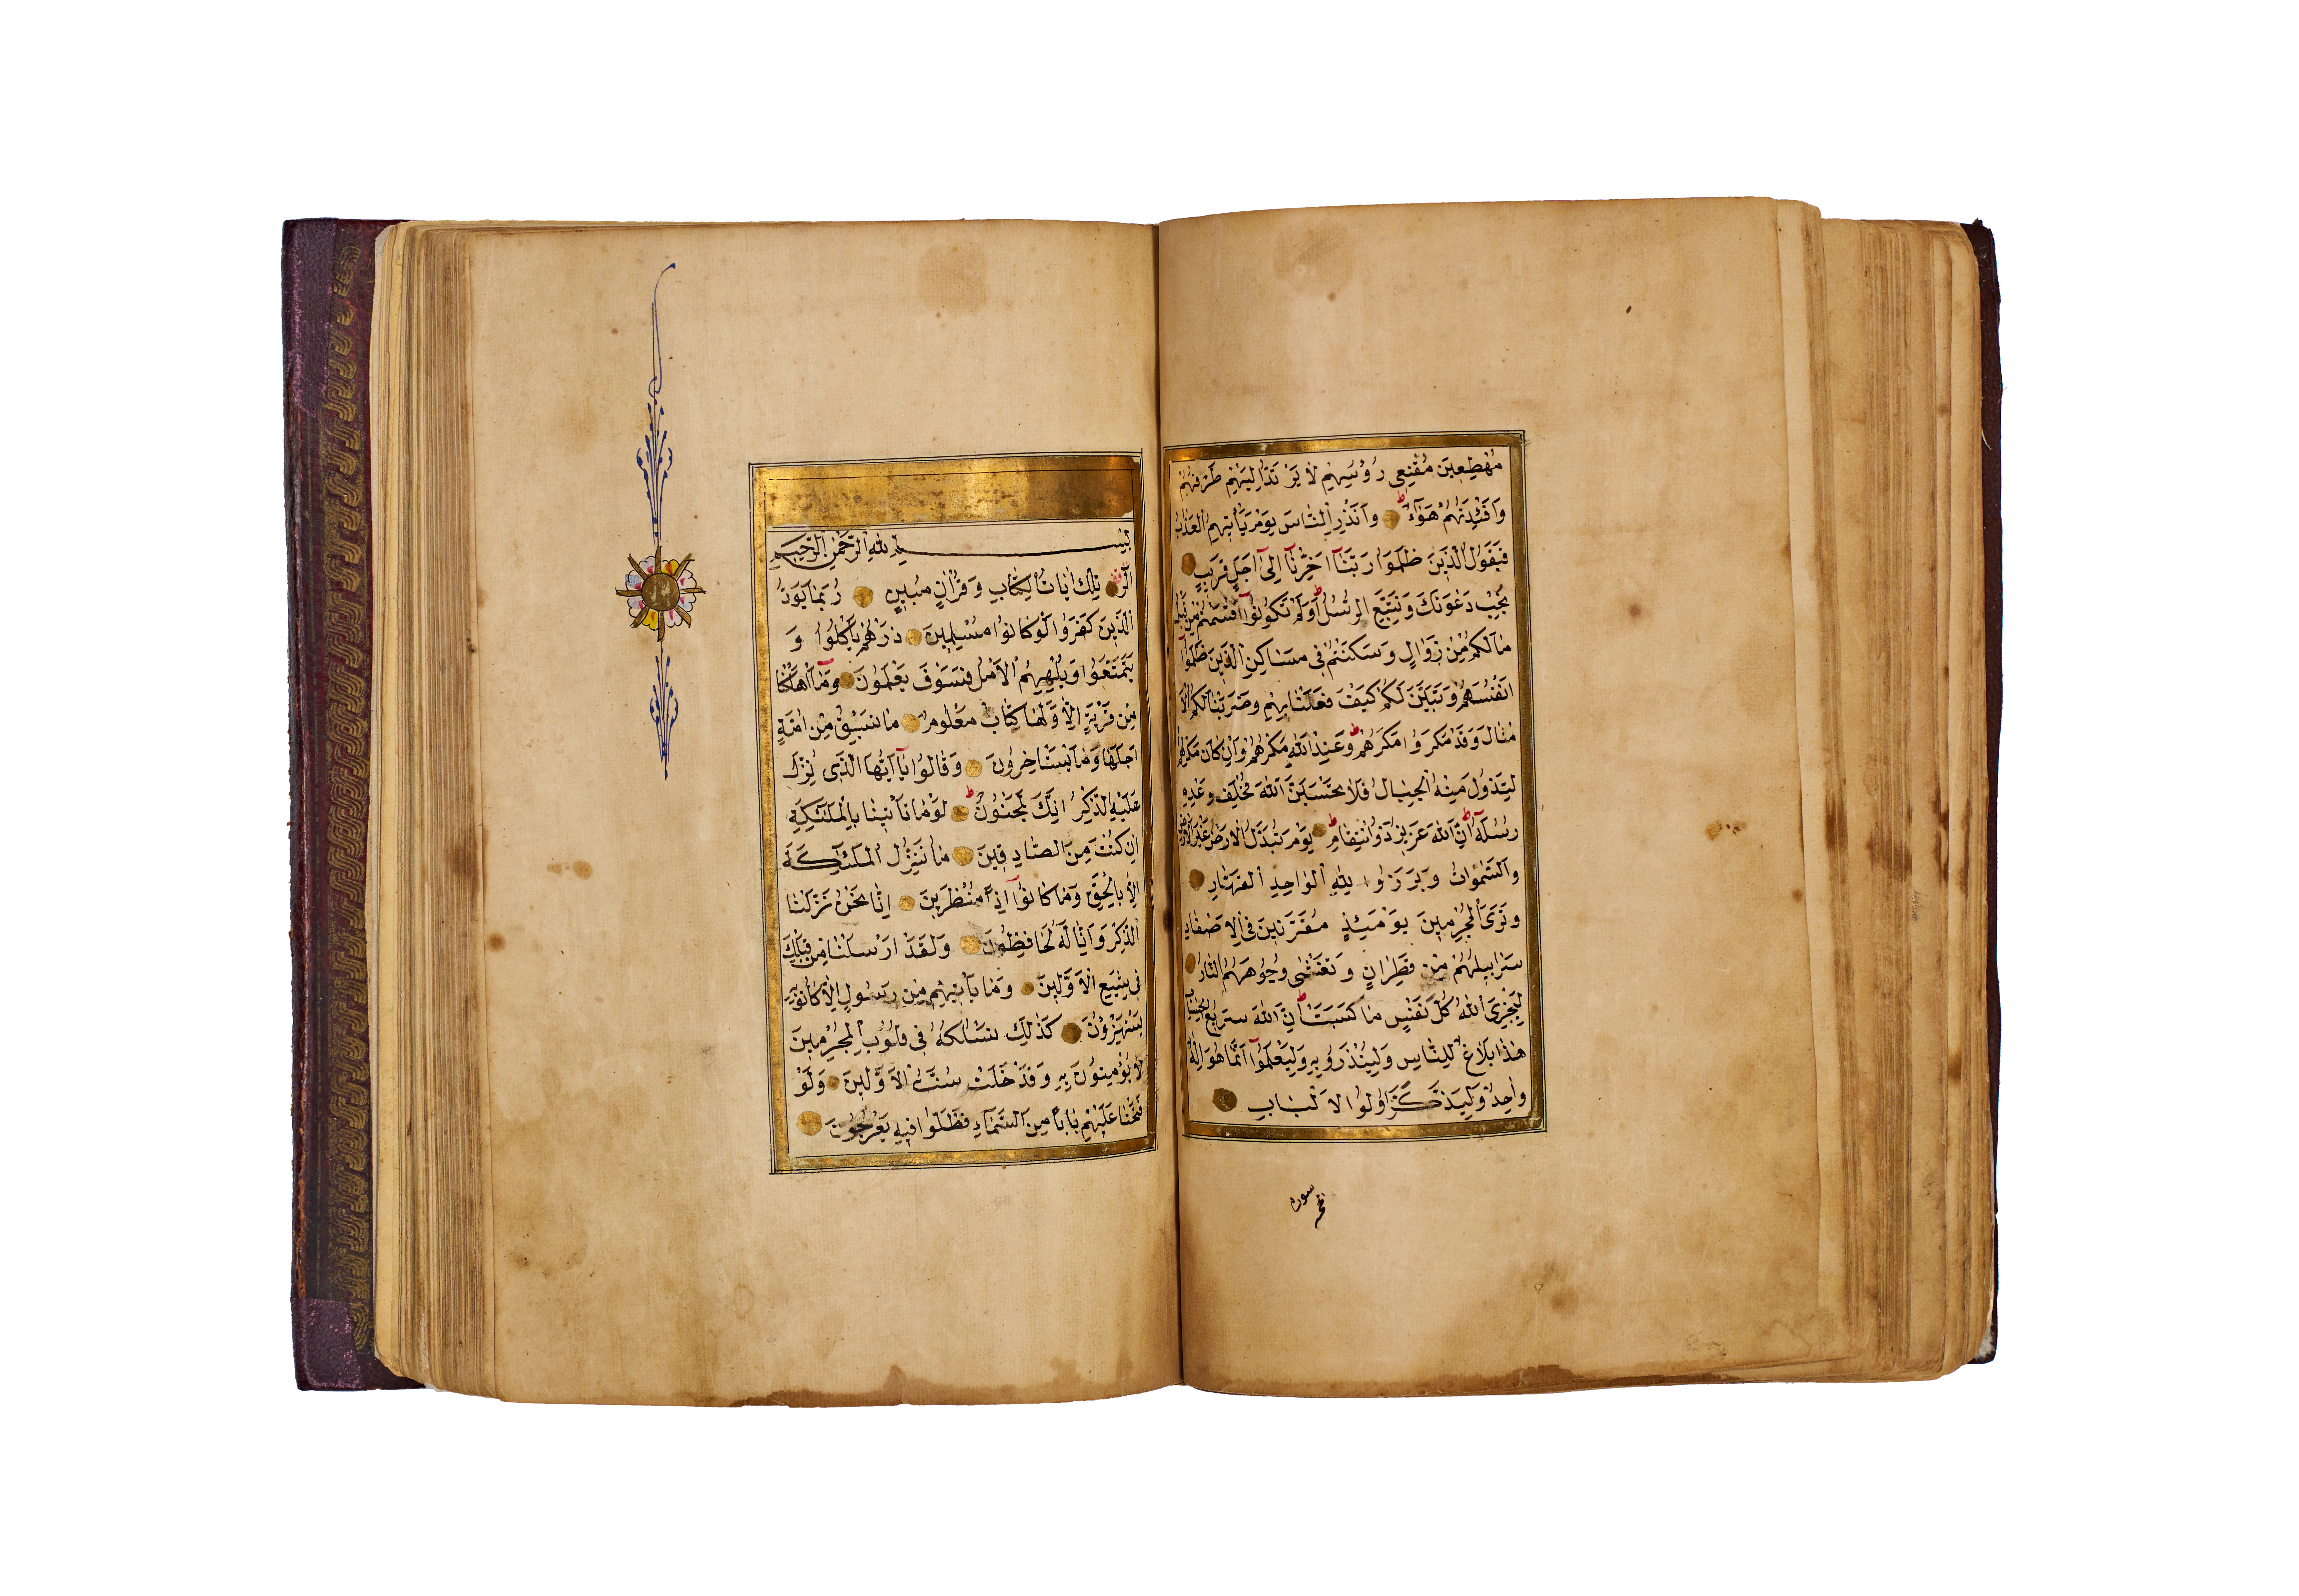 مُهْطِعِينَ مُقْنِعِي رُؤُسِهِمْ لَا يَرْتَدُّ اِلَيْهِمْ طَرْفُهُمْ
وَاَفْئِدَتُهُمْ هَوَآءٌ ط وَاَنْذِرِ النَّاسَ يَوْمَ يَأْتِيهِمُ الْعَذَابُ
فَيَقُولُ الَّذِينَ ظَلَمُوا رَبَّنَآ اَخِّرْنَآ اِلٰٓى اَجَلٍ قَرِيبٍ
نُجِبْ دَعْوَتَكَ وَنَتَّبِعِ الرُّسُلَ ط اَوَلَمْ تَكُونُوٓا اَقْسَمْتُمْ مِنْ قَبْلُ
مَالَكُمْ مِنْ زَوَالٍ وَسَكَنْتُمْ فِي مَسَاكِنِ الَّذِينَ ظَلَمُوٓا
اَنْفُسَهُمْ وَتَبَيَّنَ لَكُمْ كَيْفَ فَعَلْنَا بِهِمْ وَضَرَبْنَا لَكُمُ الْاَ
مْثَالَ وَقَدْ مَكَرُوا مَكْرَهُمْ ط وَعِنْدَ اللّٰهِ مَكْرُهُمْ وَاِنْ كَانَ مَكْرُهُمْ
لِتَزُولَ مِنْهُ الْجِبَالُ فَلَا تَحْسَبَنَّ اللّٰهَ مُخْلِفَ وَعْدِهِ
رُسُلَهُ ط اِنَّ اللّٰهَ عَزِيزٌ ذُو انْتِقَامٍ ط يَوْمَ تُبَدَّلُ الْاَرْضُ غَيْرَ الْاَرْضِ
وَالسَّمٰوَاتُ وَبَرَزُوا لِلّٰهِ الْوَاحِدِ الْقَهَّارِ
وَتَرَى الْمُجْرِمِينَ يَوْمَئِذٍ مُقَرَّنِينَ فِي الْاَصْفَادِ
سَرَابِيلُهُمْ مِنْ قَطِرَانٍ وَتَغْشٰى وُجُوهَهُمُ النَّارُ
لِيَجْزِيَ اللّٰهُ كُلَّ نَفْسٍ مَا كَسَبَتْ ط اِنَّ اللّٰهَ سَرِيعُ الْحِسَابِ
هٰذَا بَلَاغٌ لِلنَّاسِ وَلِيُنْذَرُوا بِهِ وَلِيَعْلَمُوٓا اَنَّمَا هُوَ اِلٰهٌ
وَاحِدٌ وَلِيَذَّكَّرَ اُولُوا الْاَلْبَابِ
سوره
بِسْمِ اللّٰهِ الرَّحْمٰنِ الرَّحِيمِ
الٓرٰ تِلْكَ اٰيَاتُ الْكِتَابِ وَقُرْاٰنٍ مُبِينٍ رُبَمَا يَوَدُّ
الَّذِينَ كَفَرُوا لَوْ كَانُوا مُسْلِمِينَ ذَرْهُمْ يَأْكُلُوا وَ
يَتَمَتَّعُوا وَيُلْهِهِمُ الْاَمَلُ فَسَوْفَ يَعْلَمُونَ وَمَآ اَهْلَكْنَا
مِنْ قَرْيَةٍ اِلَّا وَلَهَا كِتَابٌ مَعْلُومٌ مَا تَسْبِقُ مِنْ اُمَّةٍ
اَجَلَهَا وَمَا يَسْتَأْخِرُونَ وَقَالُوا يَآ اَيُّهَا الَّذِي نُزِّلَ
عَلَيْهِ الذِّكْرُ اِنَّكَ لَمَجْنُونٌ ط لَوْ مَا تَأْتِينَا بِالْمَلٰٓئِكَةِ
اِنْ كُنْتَ مِنَ الصَّادِقِينَ مَا نُنَزِّلُ الْمَلٰٓئِكَةَ
اِلَّا بِالْحَقِّ وَمَا كَانُوٓا اِذًا مُنْظَرِينَ اِنَّا نَحْنُ نَزَّلْنَا
الذِّكْرَ وَاِنَّا لَهُ لَحَافِظُونَ وَلَقَدْ اَرْسَلْنَا مِنْ قَبْلِكَ
فِي شِيَعِ الْاَوَّلِينَ وَمَا يَأْتِيهِمْ مِنْ رَسُولٍ اِلَّا كَانُوا بِهِ
يَسْتَهْزِؤُنَ كَذٰلِكَ نَسْلُكُهُ فِي قُلُوبِ الْمُجْرِمِينَ
لَا يُؤْمِنُونَ بِهِ وَقَدْ خَلَتْ سُنَّةُ الْاَوَّلِينَ وَلَوْ
فَتَحْنَا عَلَيْهِمْ بَابًا مِنَ السَّمَآءِ فَظَلُّوا فِيهِ يَعْرُجُونَ